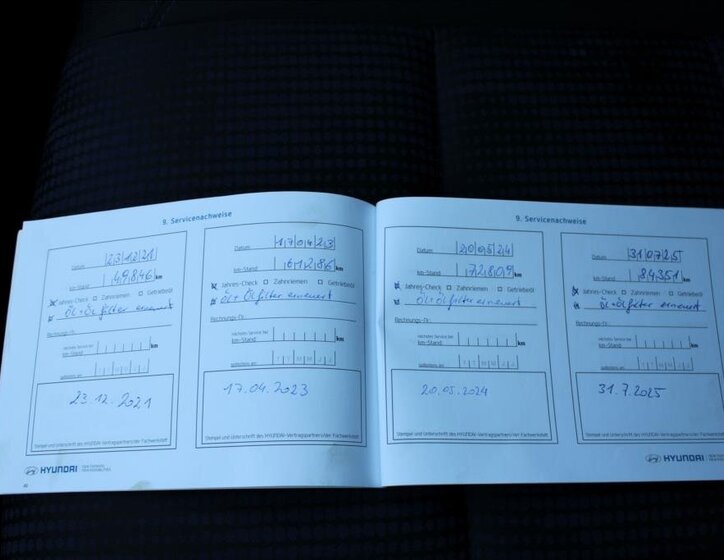 9. Servicenachweise
Datum 231221
km-Stand 49846 km
Jahres-Check Zahnriemen Getriebeöl
Öl + Ölfilter erneuert
Rechnungs-Nr.
nächstes Service bei
km-Stand km
spätestens am
23.12.2021
Stempel und Unterschrift des HYUNDAI-Vertragspartners/der Fachwerkstatt
Datum 170423
km-Stand 61286 km
Jahres-Check Zahnriemen Getriebeöl
Öl + Ölfilter erneuert
Rechnungs-Nr.
nächstes Service bei
km-Stand km
spätestens am
17.04.2023
Stempel und Unterschrift des HYUNDAI-Vertragspartners/der Fachwerkstatt
HYUNDAI
9. Servicenachweise
Datum 200524
km-Stand 72809 km
Jahres-Check Zahnriemen Getriebeöl
Öl + Ölfilter erneuert
Rechnungs-Nr.
nächstes Service bei
km-Stand km
spätestens am
20.05.2024
Stempel und Unterschrift des HYUNDAI-Vertragspartners/der Fachwerkstatt
Datum 310725
km-Stand 84351 km
Jahres-Check Zahnriemen Getriebeöl
Öl + Ölfilter erneuert
Rechnungs-Nr.
nächstes Service bei
km-Stand km
spätestens am
31.7.2025
Stempel und Unterschrift des HYUNDAI-Vertragspartners/der Fachwerkstatt
HYUNDAI